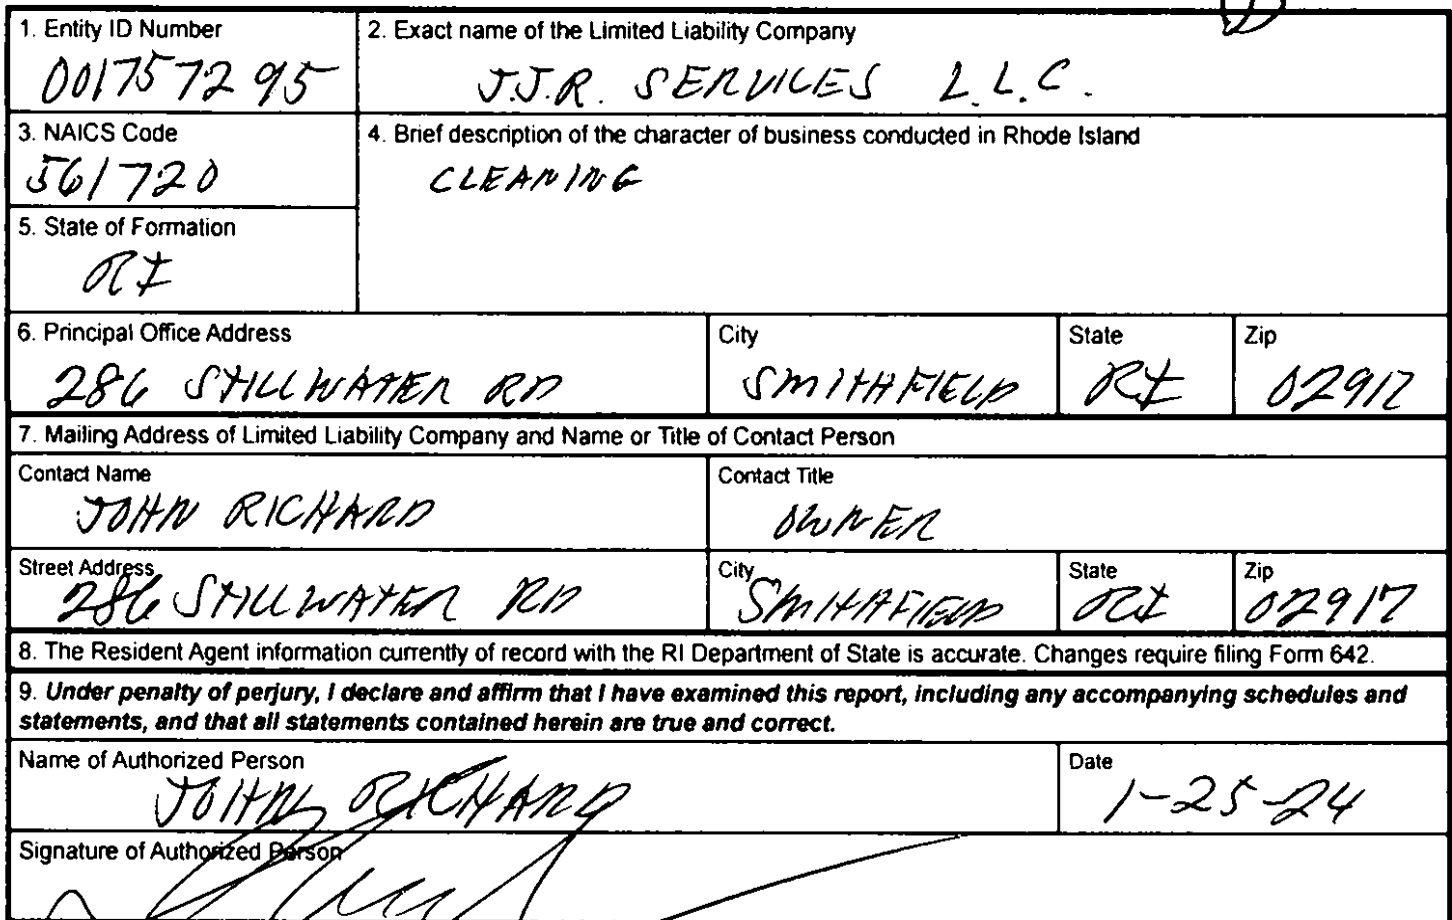 1. Entity ID Number
001757295
2. Exact name of the Limited Liability Company
J.J.R. SERVICES L.L.C.
3. NAICS Code
561720
4. Brief description of the character of business conducted in Rhode Island
CLEANING
5. State of Formation
RI
6. Principal Office Address
286 STILLWATER RD
City
SMITHFIELD
State
RI
Zip
02917
7. Mailing Address of Limited Liability Company and Name or Title of Contact Person
Contact Name
JOHN RICHARD
Contact Title
OWNER
Street Address
286 STILLWATER RD
City
SMITHFIELD
State
RI
Zip
02917
8. The Resident Agent information currently of record with the RI Department of State is accurate. Changes require filing Form 642.
9. Under penalty of perjury, I declare and affirm that I have examined this report, including any accompanying schedules and
statements, and that all statements contained herein are true and correct.
Name of Authorized Person
JOHN RICHARD
Date
1-25-24
Signature of Authorized Person